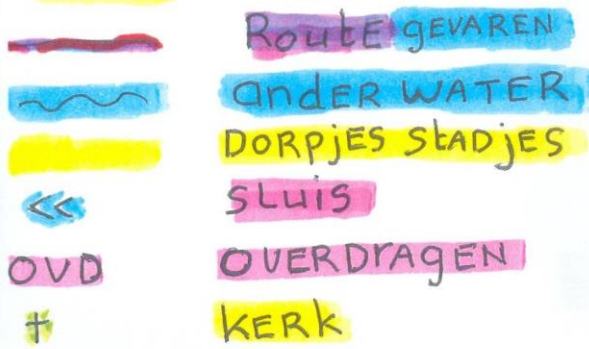 Route GEVAREN
ander WATER
DORPJES StADJES
<< SLuis
OVD OVERDRAGEN
† KERK